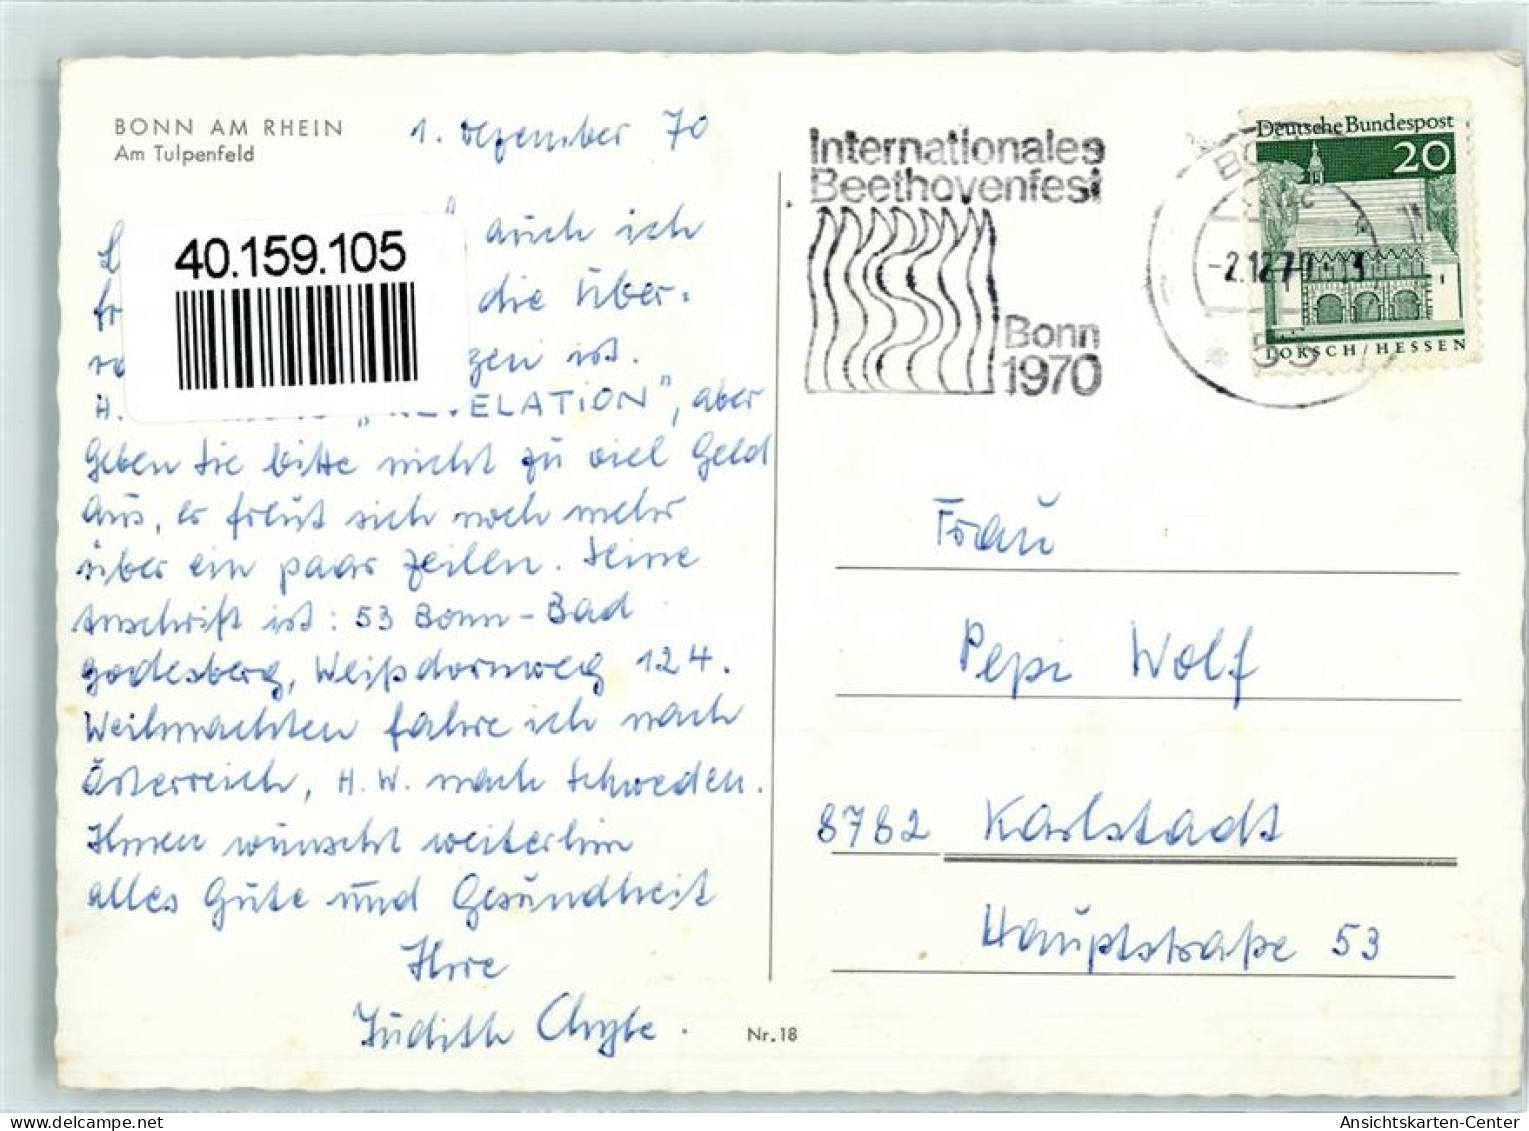 BONN AM RHEIN
Am Tulpenfeld
1. Dezember 70
auch ich
40.159.105
die Über-
ist.
H. „REVELATION", aber
geben Sie bitte nicht zu viel Geld
aus, er freut sich noch mehr
über ein paar Zeilen. Seine
Anschrift ist: 53 Bonn-Bad
Godesberg, Weißdornweg 124.
Weihnachten fahre ich nach
Österreich, H.W. nach Schweden.
Ihnen wünscht weiterhin
alles Gute und Gesundheit
Ihre
Judith
Nr. 18
Internationales
Beethovenfest
Bonn
1970
-2.12.70
53
Deutsche Bundespost
20
LORSCH/HESSEN
Frau
Pepi Wolf
8782 Karlstadt
Hauptstraße 53
Ansichtskarten-Center
oldthing.de